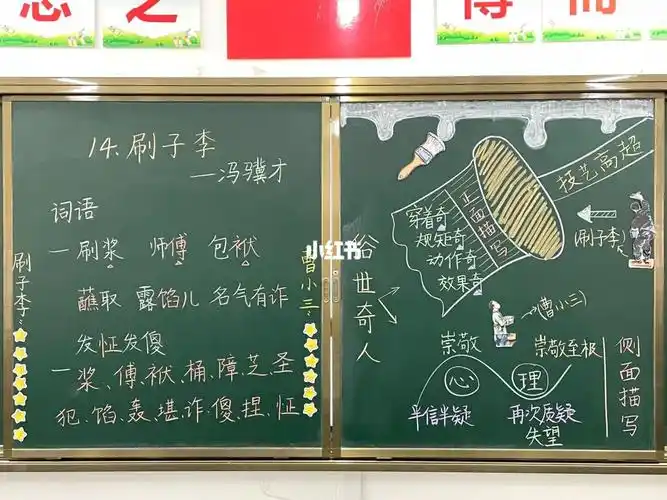 之
博
而
14.刷子李
—冯骥才
词语
一刷浆 师傅 包袱
蘸取 露馅儿 名气有诈
发怔发傻
一浆、傅、袱、桶、障、芝、圣
犯、馅、轰、堪、诈、傻、捏、怔
刷子李:
曹小三:
小红书
俗世奇人
穿着奇
规矩奇
动作奇
效果奇
正面描写
技艺高超
(刷子李)
(曹小三)
崇敬 崇敬至极
心 理
半信半疑 再次质疑
失望
侧面描写